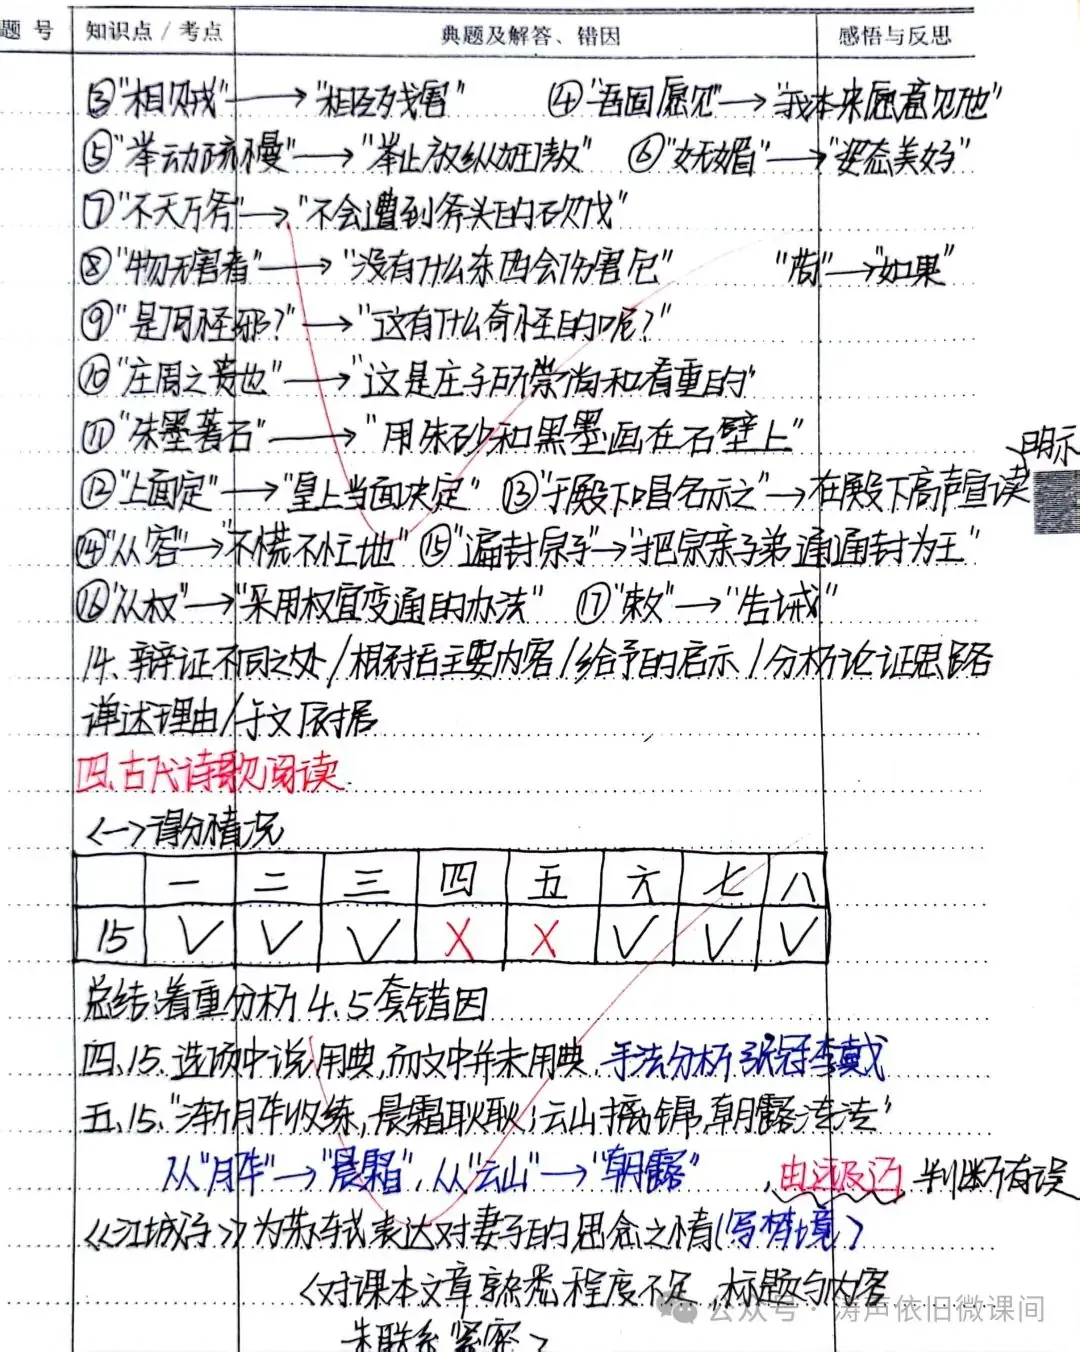 题 号 知识点 / 考点 典题及解答、错因 感悟与反思
③"相贼"→"相互残害" ④"吾固愿见"→"我本来愿意见他"
⑤"举动疏慢"→"举止放纵加傲" ⑥"妩媚"→"姿态美好"
⑦"不夭斤斧"→"不会遭到斧头的砍伐"
⑧"物无害者"→"没有什么东西会伤害它" "苟"→"如果"
⑨"是何怪邪?"→"这有什么奇怪的呢?"
⑩"庄周之贵也"→"这是庄子所崇尚和看重的"
⑪"朱墨著石"→"用朱砂和黑墨画在石壁上"
明示
⑫"上面定"→"皇上当面决定" ⑬"于殿下唱名示之"→在殿下高声宣读
⑭"从容"→"不慌不忙地" ⑮"遍封宗子"→"把宗亲子弟通通封为王"
⑯"从权"→"采用权宜变通的办法" ⑰"敕"→"告诫"
14. 辩证不同之处/相对后主要内容/给予的启示/分析论证思路
详述理由/于文原据
四.古代诗歌阅读
<一>得分情况
一 二 三 四 五 六 七 八
15 ✓ ✓ ✓ X X ✓ ✓ ✓
总结:着重分析4.5套错因
四.15.选项中说用典,而文中并未用典.手法分析张冠李戴
五.15."渐月华收练,晨霜耿耿;云山摛锦,朝露漙漙"
从"月华"→"晨霜",从"云山"→"朝露",由远及近,判断有误
《江城子》为苏轼表达对妻子的思念之情(写梦境)
<对课本文章熟悉程度不足,标题与内容
未联系紧密>
公众号 · 涛声依旧微课间